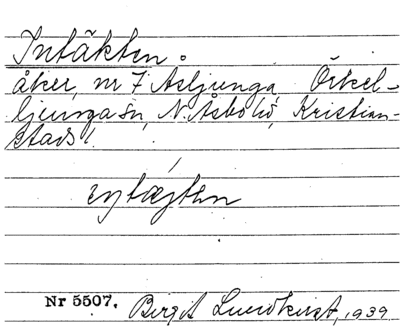 Intäkten:
åker, nr 7 Åsljunga, Örkel-
ljunga sn, N. Åsbo hd, Kristian-
stads l
Nr 5507. Birgit Lundkvist, 1939